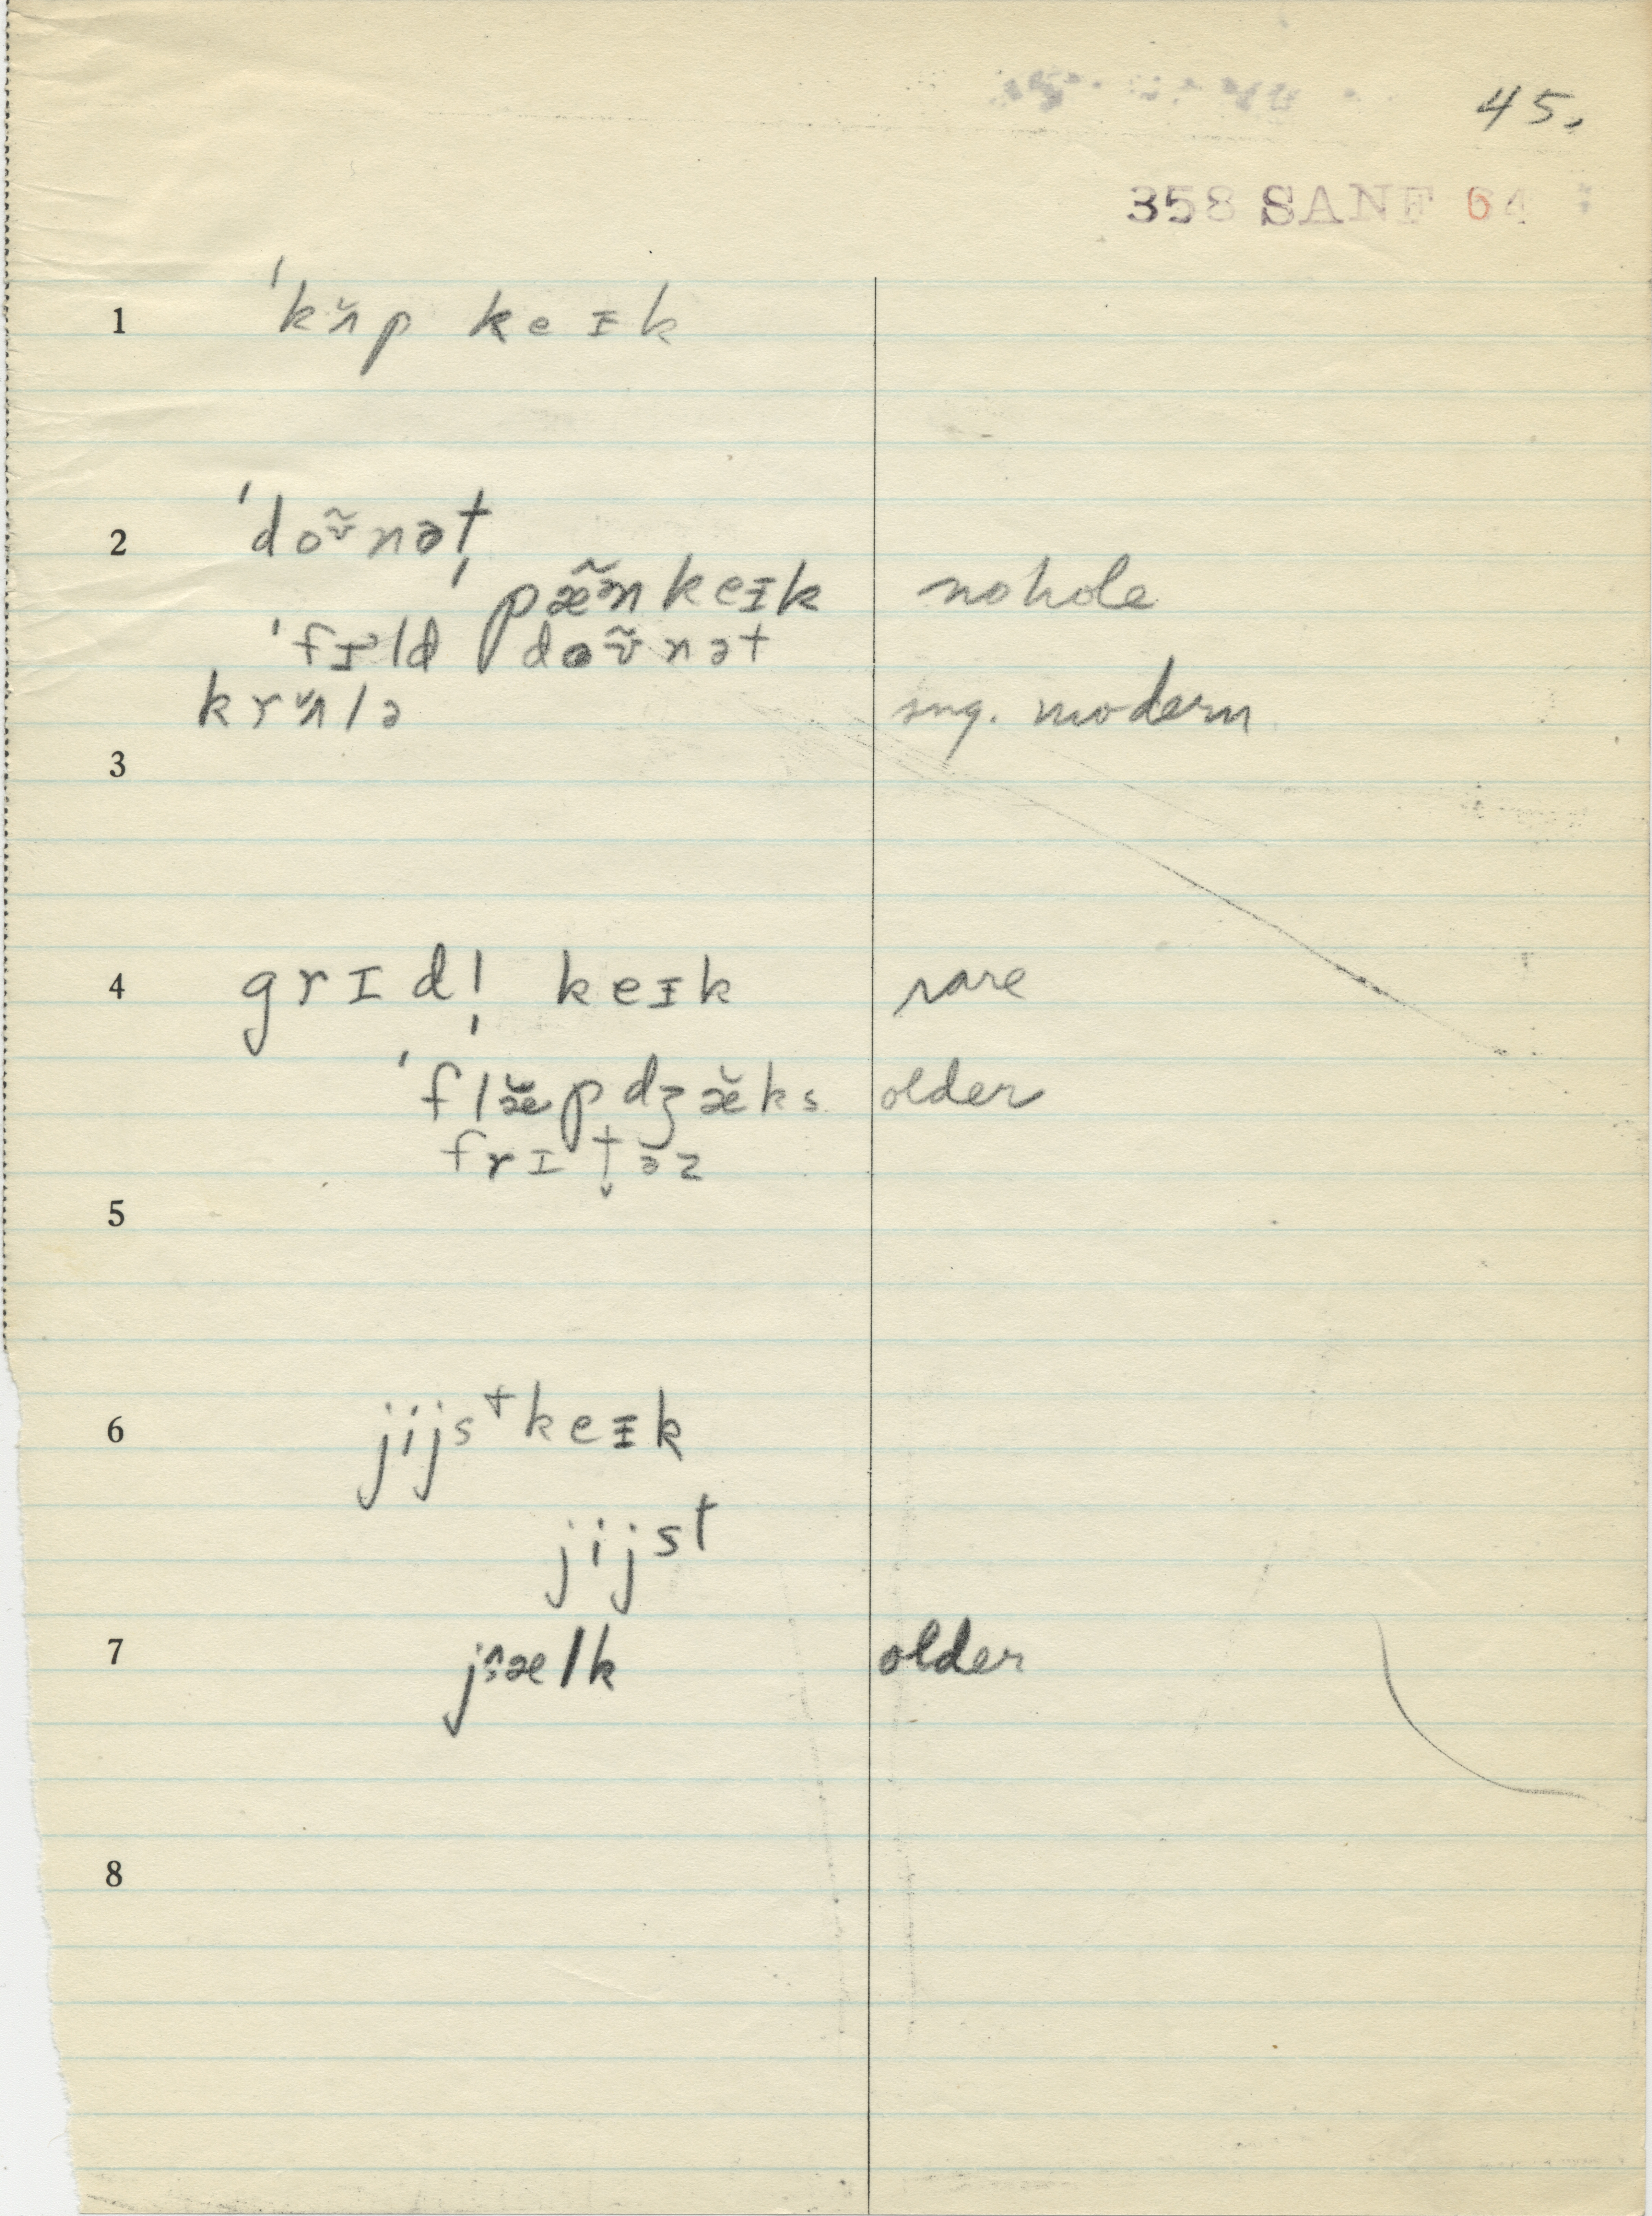 45.
358 SANF 64
1 ˈkʌ̆p keɪk
2 ˈdoʊ̃nət
ˈpæ̃ənkeɪk nohole
ˈfɪld doʊ̃nət
krʌ̆lə sng. modern
3
4 grɪdl̩ keɪk rare
ˈflæ̆pdʒæ̆ks older
frɪt̬əz
5
6 jijstkeɪk
jijst
7 jælk older
8